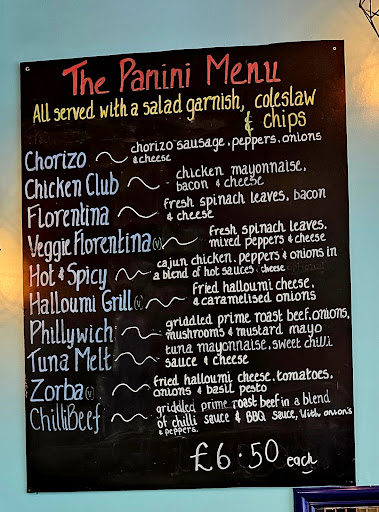 The Panini Menu
All served with a salad garnish, coleslaw
& chips
Chorizo ~ chorizo sausage, peppers, onions
& cheese
Chicken Club ~ chicken mayonnaise,
bacon & cheese
Florentina ~ fresh spinach leaves, bacon
& cheese
Veggie Florentina (v) ~ fresh spinach leaves,
mixed peppers & cheese
Hot & Spicy ~ cajun chicken, peppers & onions in
a blend of hot sauces. cheese
Halloumi Grill (v) ~ fried halloumi cheese,
& caramelised onions
Phillywich ~ griddled prime roast beef, onions,
mushrooms & mustard mayo
Tuna Melt ~ tuna mayonnaise, sweet chilli
sauce & cheese
Zorba (v) ~ fried halloumi cheese, tomatoes,
onions & basil pesto
Chilli Beef ~ griddled prime roast beef in a blend
of chilli sauce & BBQ sauce, with onion's
& peppers.
£6.50 each